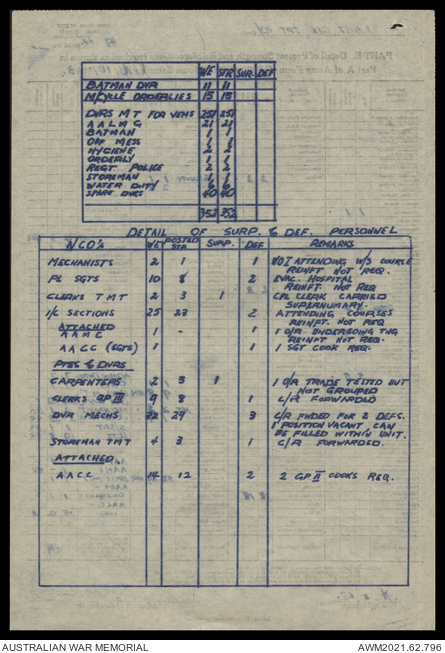 W/E STR SUR. DEF
BATMAN DVR 11 11
M/CYCLE ORDERLIES 15 15
DVRS MT FOR VEHS 251 251
AALMG 21 21
BATMAN 1 1
OFF MESS 1 1
HYGIENE 2 2
ORDERLY 1 1
REGT POLICE 2 2
STOREMAN 1 1
WATER DUTY 6 6
SPARE DVRS 40 40
352 352
DETAIL OF SURP & DEF. PERSONNEL
NCO's WE POSTED STR SURP. DEF REMARKS
MECHANISTS 2 1 1 NO 1 ATTENDING W/S COURSE
REINFT NOT REQ.
PL SGTS 10 8 2 EVAC. HOSPITAL
REINFT. NOT REQ
CLERKS TMT 2 3 1 CPL CLERK CARRIED
SUPERNUMARY.
I/C SECTIONS 25 23 2 ATTENDING COURSES
REINFT. NOT REQ
ATTACHED
AAMC 1 - 1 1 O/R UNDERGOING TNG
REINFT NOT REQ.
AACC (SGTS) 1 1 1 SGT COOK REQ.
PTES & DVRS
CARPENTERS 2 3 1 1 O/R TRADE TESTED BUT
NOT GROUPED
CLERKS GP III 9 8 1 C/R FORWARDED
DVR MECHS 32 29 3 C/R FWDED FOR 2 DEFS.
1 POSITION VACANT, CAN
BE FILLED WITHIN UNIT.
STOREMAN TMT 4 3 1 C/R FORWARDED.
ATTACHED
AACC 14 12 2 2 GP II COOKS REQ.
AUSTRALIAN WAR MEMORIAL AWM2021.62.796